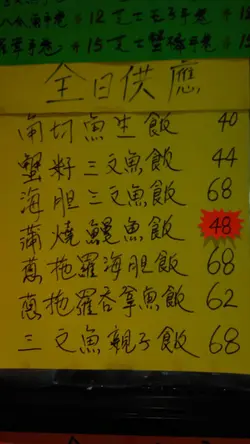 八爪魚手卷 $12 芝士玉子手卷
手卷 $15 芝士蟹柳手卷 $15
全日供應
角切魚生飯 40
蟹籽三文魚飯 44
海胆三文魚飯 68
蒲燒鰻魚飯 48
蔥拖羅海胆飯 68
蔥拖羅吞拿魚飯 62
三文魚親子飯 68